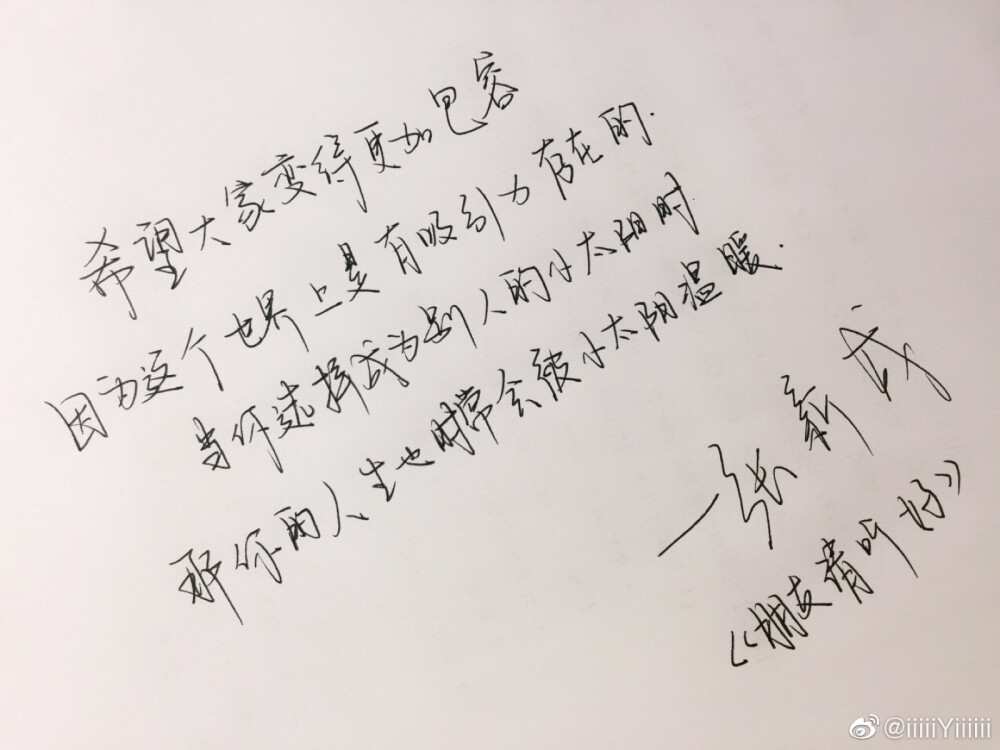 希望大家变得更加包容
因为这个世界上是有吸引力存在的.
当你选择成为别人的小太阳时
那你的人生也时常会被小太阳温暖.
—张新成
《朋友请听好》
@iiiiiYiiiiii